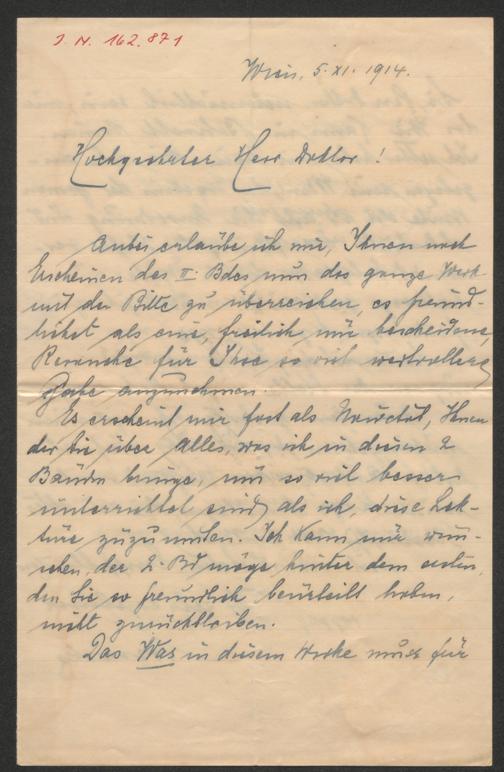 J. N. 162.871
Wien, 5. XI. 1914.
Hochgeehrter Herr Doktor!
Anbei erlaube ich mir, Ihnen nach
Erscheinen des II. Bdes nun das ganze Werk
mit der Bitte zu überreichen, es freund-
lichst als eine, freilich nur bescheidene,
Revanche für Ihre so viel wertvollere
Gabe anzunehmen.
Es erscheint mir fast als Ihnen
der Sie über alles, was ich in diesen 2
Bänden bringe, um so viel besser
unterrichtet sind, als ich, diese Lek-
türe zuzumuten. Ich kann nur wün-
schen, der 2. Bd möge hinter dem ersten,
den Sie so freundlich beurteilt haben,
nicht zurückbleiben.
Das Was in diesem Werke muss für